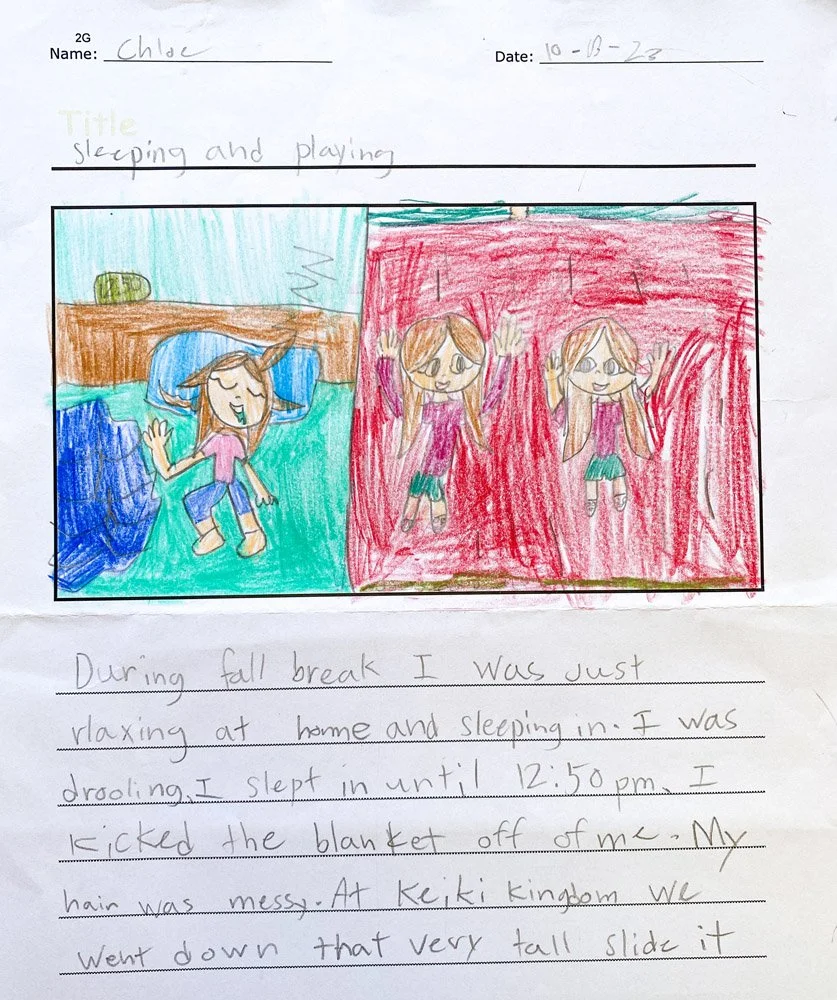 2G
Name: Chloe
Date: 10-13-23
Title
sleeping and playing
During fall break I was Just
rlaxing at home and sleeping in. I was
drooling. I slept in until 12:50 pm. I
kicked the blanket off of me. My
hair was messy. At Keiki Kingdom we
went down that very tall slide it